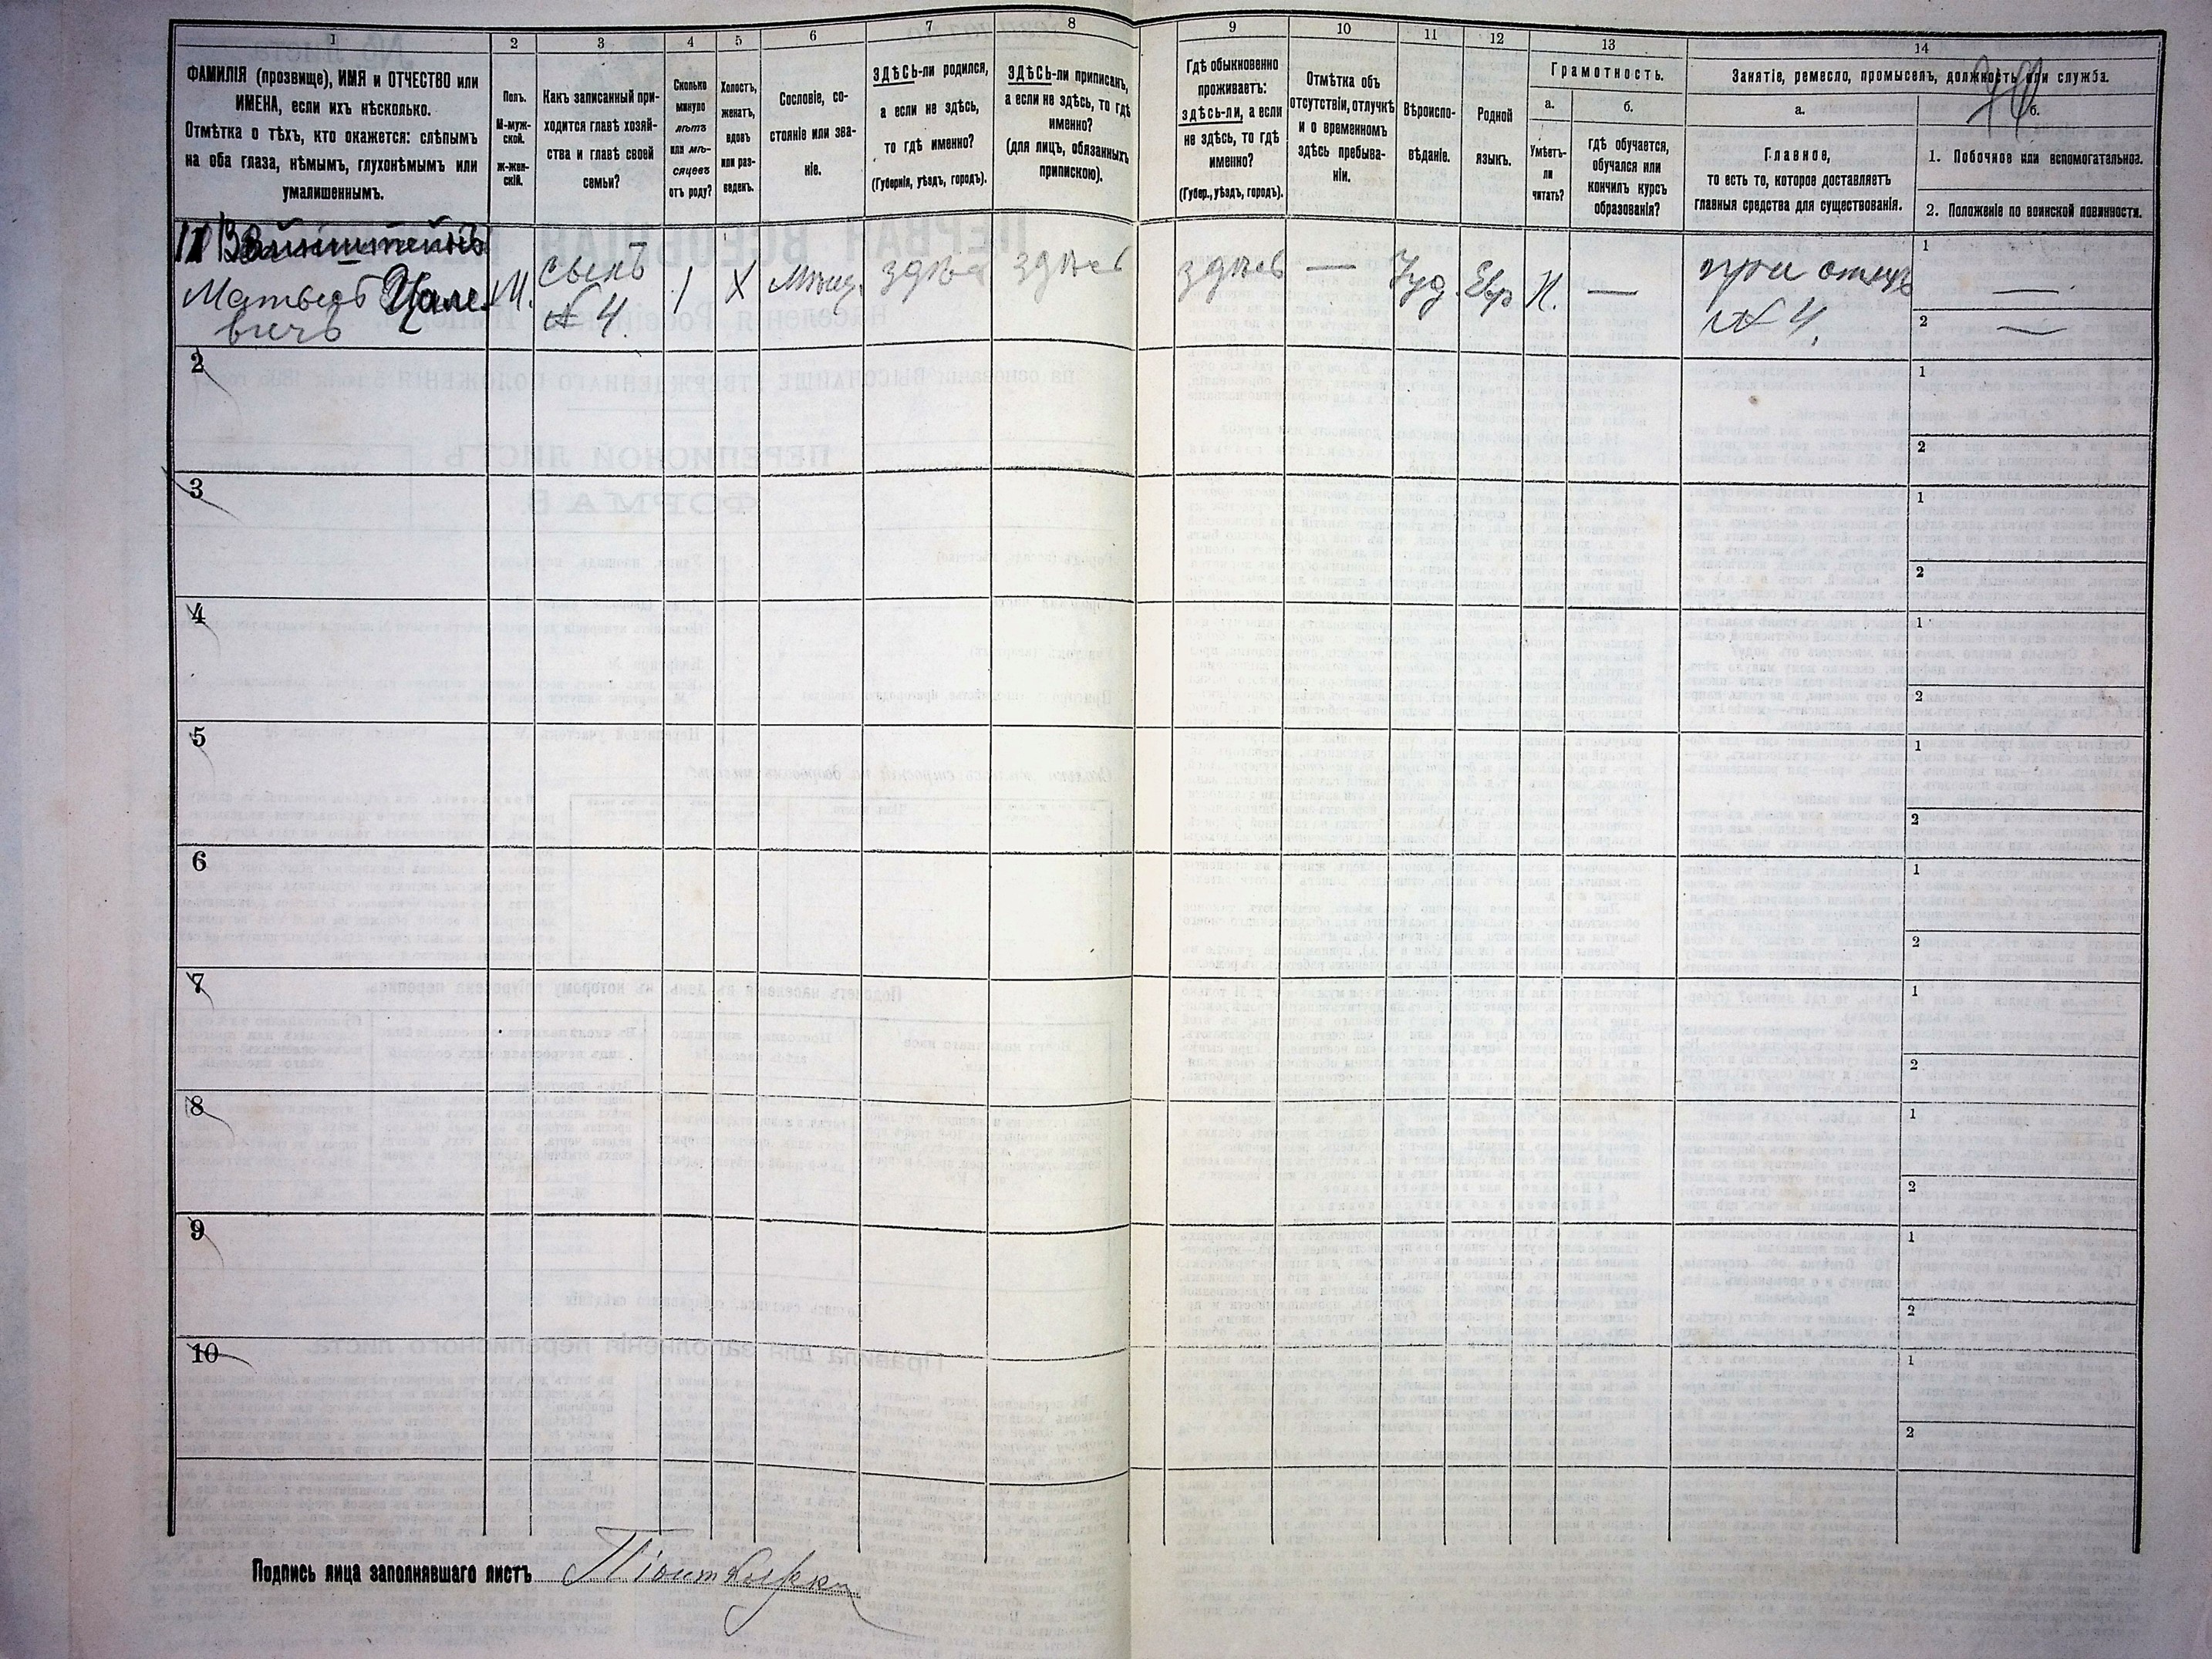 1
2
3
4
5
6
7
8
9
10
11
12
13
14
ФАМИЛІЯ (прозвище), ИМЯ и ОТЧЕСТВО или
ИМЕНА, если ихъ нѣсколько.
Отмѣтка о тѣхъ, кто окажется: слѣпымъ
на оба глаза, нѣмымъ, глухонѣмымъ или
умалишеннымъ.
Полъ.
М-муж-
ской.
Ж-жен-
скій.
Какъ записанный при-
ходится главѣ хозяй-
ства и главѣ своей
семьи?
Сколько
минуло
лѣтъ
или мѣ-
сяцевъ
отъ роду?
Холостъ,
женатъ,
вдовъ
или раз-
веденъ.
Сословіе, со-
стояніе или зва-
ніе.
ЗДѢСЬ-ли родился,
а если не здѣсь,
то гдѣ именно?
(Губернія, уѣздъ, городъ).
ЗДѢСЬ-ли приписанъ,
а если не здѣсь, то гдѣ
именно?
(для лицъ, обязанныхъ
припискою).
Гдѣ обыкновенно
проживаетъ:
здѣсь-ли, а если
не здѣсь, то гдѣ
именно?
(Губер., уѣздъ, городъ).
Отмѣтка объ
отсутствіи, отлучкѣ
и о временномъ
здѣсь пребыва-
ніи.
Вѣроиспо-
вѣданіе.
Родной
языкъ.
Грамотность.
а.
б.
Умѣетъ-
ли
читать?
гдѣ обучается,
обучался или
кончилъ курсъ
образованія?
Занятіе, ремесло, промыселъ, должность или служба.
а.
б.
Главное,
то есть то, которое доставляетъ
главныя средства для существованія.
1. Побочное или вспомогательное.
2. Положеніе по воинской повинности.
11 Вайнштейнъ
Матвѣй Цале-
вичъ
М.
сынъ
№ 4.
1
Х
Мѣщ.
здѣсь
здѣсь
здѣсь
—
Іуд.
Евр
Н.
—
при отцѣ
№ 4.
1 —
2 —
2
1
2
3
1
2
4
1
2
5
1
2
6
1
2
7
1
2
8
1
2
9
1
2
10
1
2
Подпись лица заполнявшаго листъ